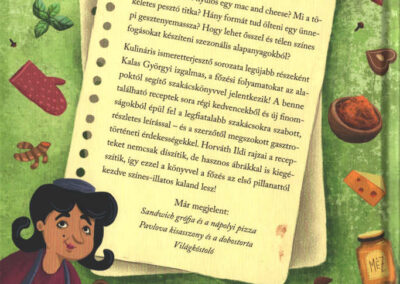 nyúlós egy mac and cheese? Mi a tö-
kéletes pesztó titka? Hány formát tud ölteni egy ünne-
pi gesztenyemassza? Hogy lehet ősszel és télen színes
fogásokat készíteni szezonális alapanyagokból?
Kulináris ismeretterjesztő sorozata legújabb részeként
Kalas Györgyi izgalmas, a főzési folyamatokat az ala-
poktól segítő szakácskönyvvel jelentkezik! A benne
található receptek sora régi kedvencekből és új finom-
ságokból épül fel a legfiatalabb szakácsokra szabott,
részletes leírással – és a szerzőtől megszokott gasztro-
történeti érdekességekkel. Horváth Ildi rajzai a recep-
teket nemcsak díszítik, de hasznos ábrákkal is kiegé-
szítik, így ezzel a könyvvel a főzés az első pillanattól
kezdve színes-illatos kaland lesz!
Már megjelent:
Sandwich grófja és a nápolyi pizza
Pavlova kisasszony és a dobostorta
Világkóstoló
MÉZ